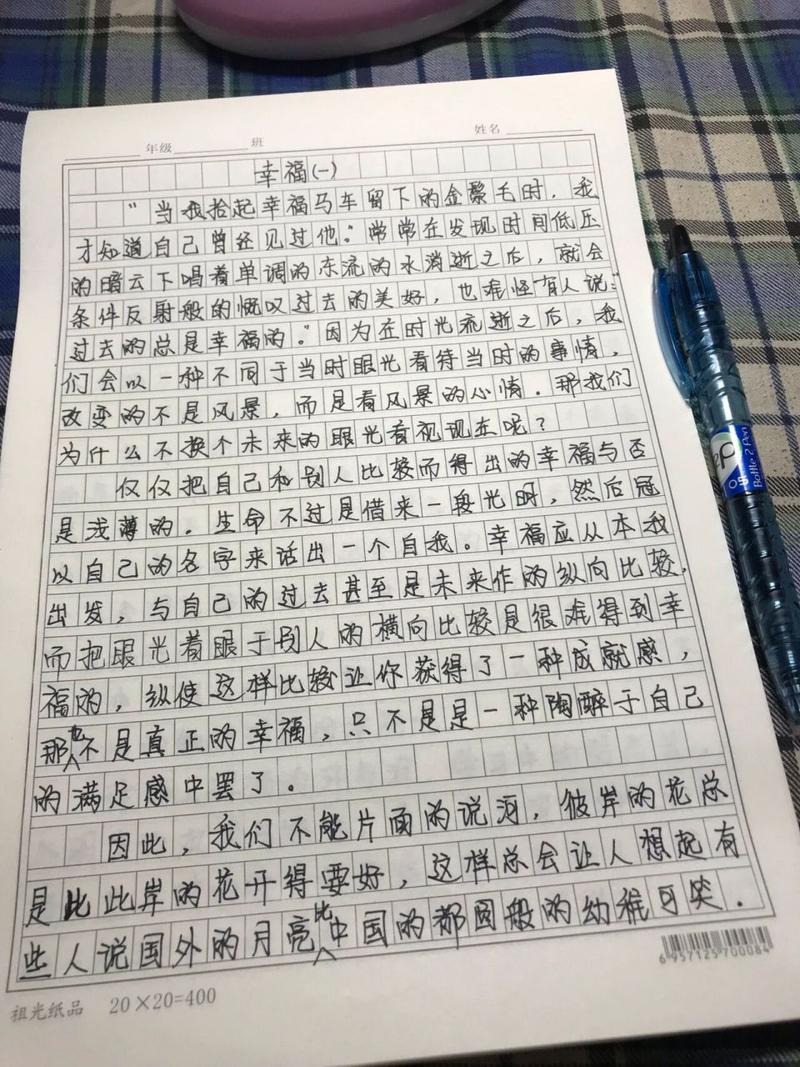 年级 班 姓名
幸福(一)
"当我拾起幸福马车留下的金鬃毛时,我
才知道自己曾经见过他."常常在发现时间低压
的暗云下唱着单调的东流的水消逝之后,就会
条件反射般的慨叹过去的美好,也难怪有人说:"
过去的总是幸福的."因为在时光流逝之后,我
们会以一种不同于当时眼光看待当时的事情,
改变的不是风景,而是看风景的心情.那我们
为什么不换个未来的眼光看视现在呢?
仅仅把自己和别人比较而得出的幸福与否
是浅薄的.生命不过是借来一段光阴,然后冠
以自己的名字来活出一个自我。幸福应从本我
出发,与自己的过去甚至是未来作的纵向比较,
而把眼光着眼于别人的横向比较是很难得到幸
福的,纵使这样比较让你获得了一种成就感,
那也不是真正的幸福,只不是是一种陶醉于自己
的满足感中罢了。
因此,我们不能片面的说河,彼岸的花总
是比此岸的花开得要好,这样总会让人想起有
些人说国外的月亮比中国的都圆般的幼稚可笑.
祖光纸品 20×20=400
6957125700084
0.5
Bottle 2 Pen